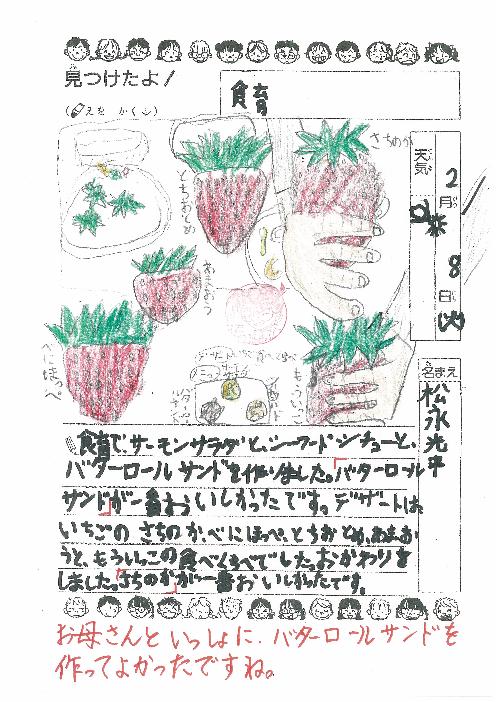 見つけたよ!
(えを かく)
食育
天気
2月8日(火)
名まえ
松永光平
さちのか
とちおとめ
あまおう
べにほっぺ
もういっこ
食育で、サーモンサラダと、シーフードシチューと、
バターロールサンドを作りました。バターロール
サンドが一番おいしかったです。デザートは
いちごの さちのか、べにほっぺ、とちおとめ、あまお
うと、もういっこの食べくらべでした。おかわりを
しました。さちのかが一番おいしかったです。
お母さんといっしょに、バターロールサンドを
作ってよかったですね。